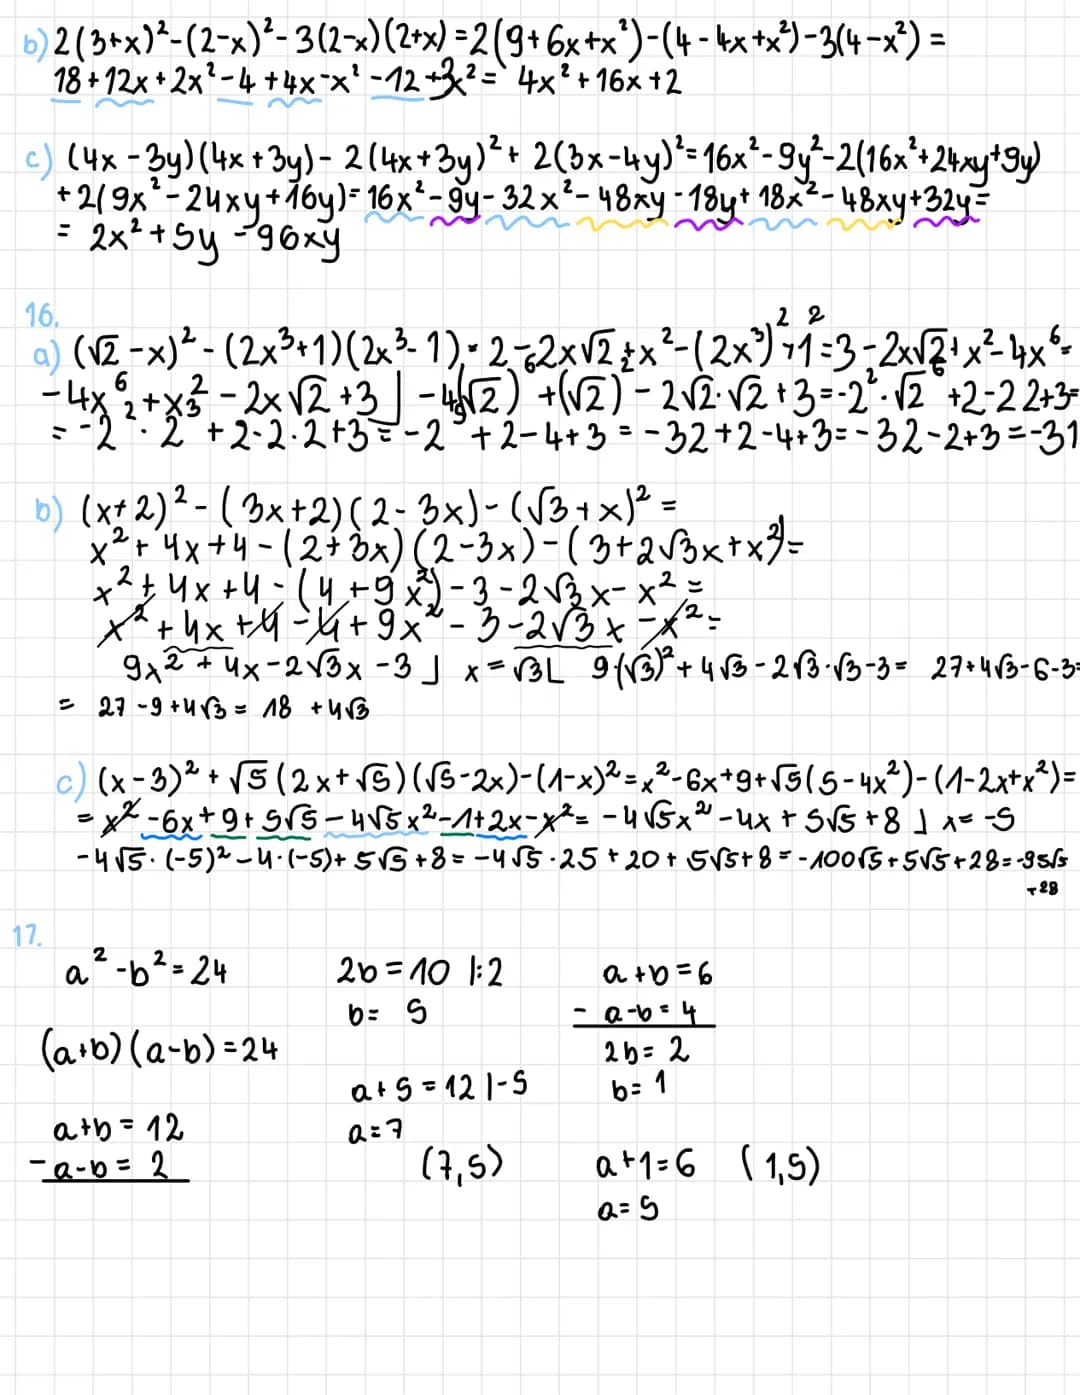 b) 2(3+x)²-(2-x)²-3(2-x)(2+x)=2(9+6x+x²)-(4-4x+x²)-3(4-x²)=
18+12x+2x²-4+4x-x²-12+3x²= 4x²+16x+2
c) (4x-3y)(4x+3y)-2(4x+3y)²+2(3x-4y)²=16x²-9y²-2(16x²+24xy+9y)
+2(9x²-24xy+16y)=16x²-9y-32x²-48xy-18y+18x²-48xy+32y=
= 2x²+5y-96xy
16.
a) (√2-x)²-(2x³+1)(2x³-1)=2-2x√2+x²-(2x³)²+1²=3-2x√2+x²-4x⁶=
-4x⁶+x²-2x√2+3⌋ -4(√2)⁶+(√2)²-2√2·√2+3=-2²·√2⁶+2-2·2+3=
=-2²·2³+2-2·2+3=-2⁵+2-4+3=-32+2-4+3=-32-2+3=-31
b) (x+2)²-(3x+2)(2-3x)-(√3+x)²=
x²+4x+4-(2+3x)(2-3x)-(3+2√3x+x²)=
x²+4x+4-(4+9x²)-3-2√3x-x²=
x²+4x+4-4+9x²-3-2√3x-x²=
9x²+4x-2√3x-3⌋ x=√3⌊ 9(√3)²+4√3-2√3·√3-3= 27+4√3-6-3=
= 27-9+4√3= 18+4√3
c) (x-3)²+√5(2x+√5)(√5-2x)-(1-x)²=x²-6x+9+√5(5-4x²)-(1-2x+x²)=
=x²-6x+9+5√5-4√5x²-1+2x-x²= -4√5x²-4x+5√5+8⌋ x=-5
-4√5·(-5)²-4·(-5)+5√5+8=-4√5·25+20+5√5+8=-100√5+5√5+28=-95√5
+28
17.
a²-b²=24 2b=10 |:2 a+b=6
b= 5 - a-b=4
(a+b)(a-b)=24 2b=2
a+5=12 |-5 b=1
a+b=12 a=7
-a-b=2 (7,5) a+1=6 (1,5)
a=5